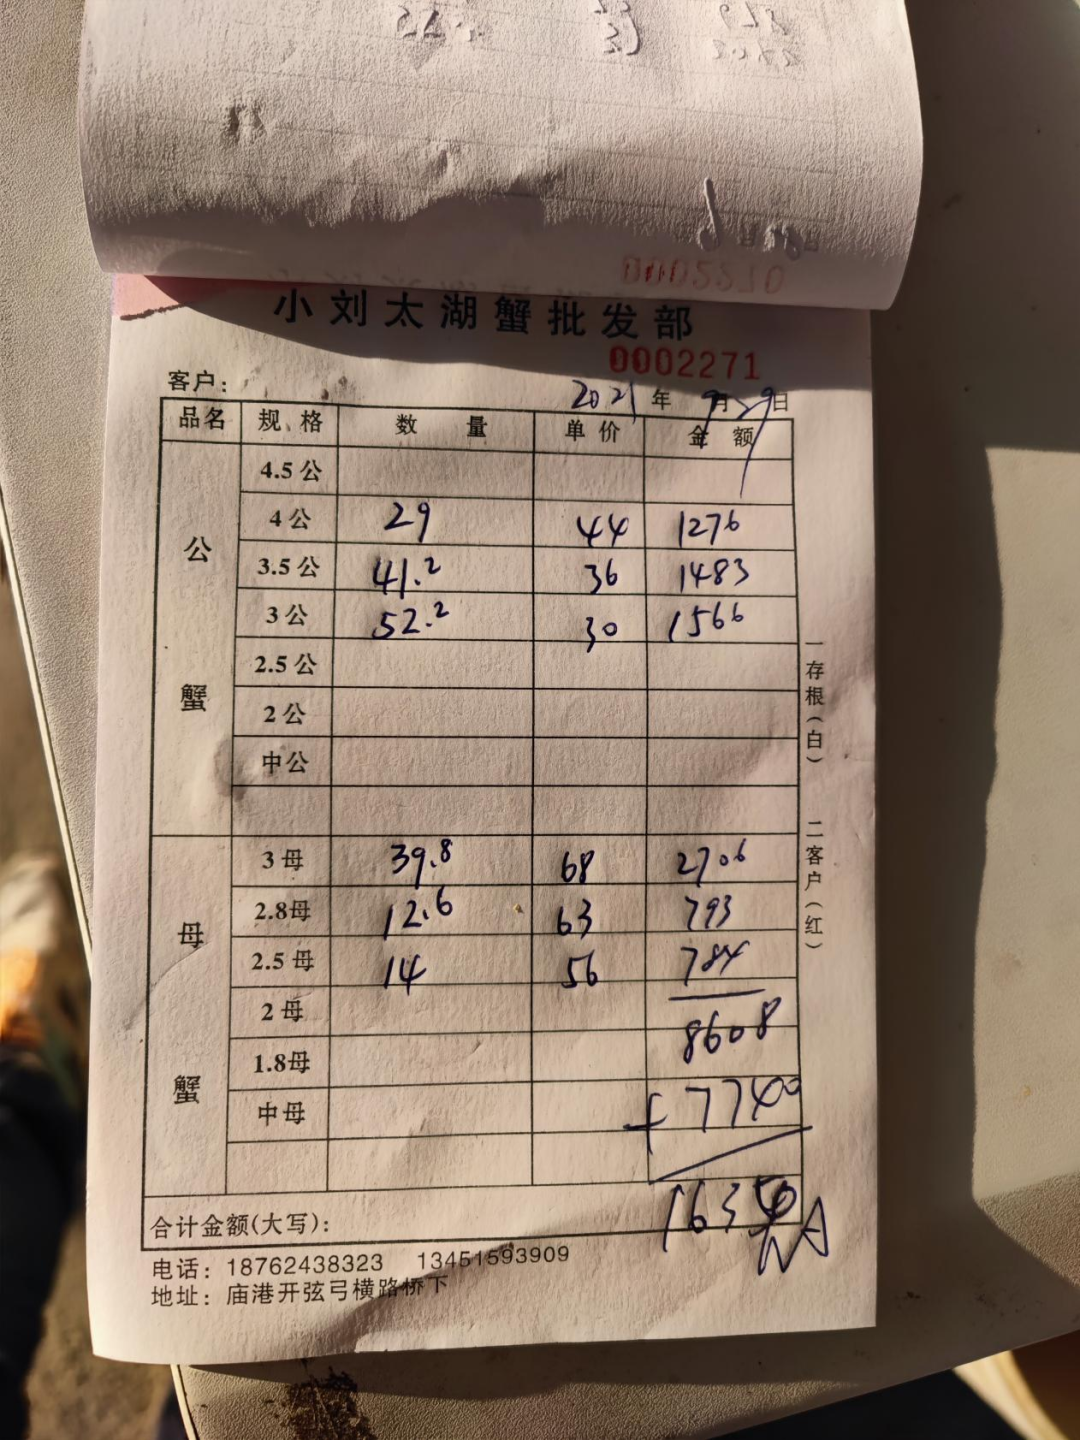 0002270
小刘太湖蟹批发部
0002271
客户： 2021年9月29日
品名 规格 数量 单价 金额
公蟹
4.5公
4公 29 44 1276
3.5公 41.2 36 1483
3公 52.2 30 1566
2.5公
2公
中公
母蟹
3母 39.8 68 2706
2.8母 12.6 63 793
2.5母 14 56 784
2母 8608
1.8母
中母 +7740
16350
合计金额(大写)：
电话：18762438323 13451593909
地址：庙港开弦弓横路桥下
一存根(白)
二客户(红)